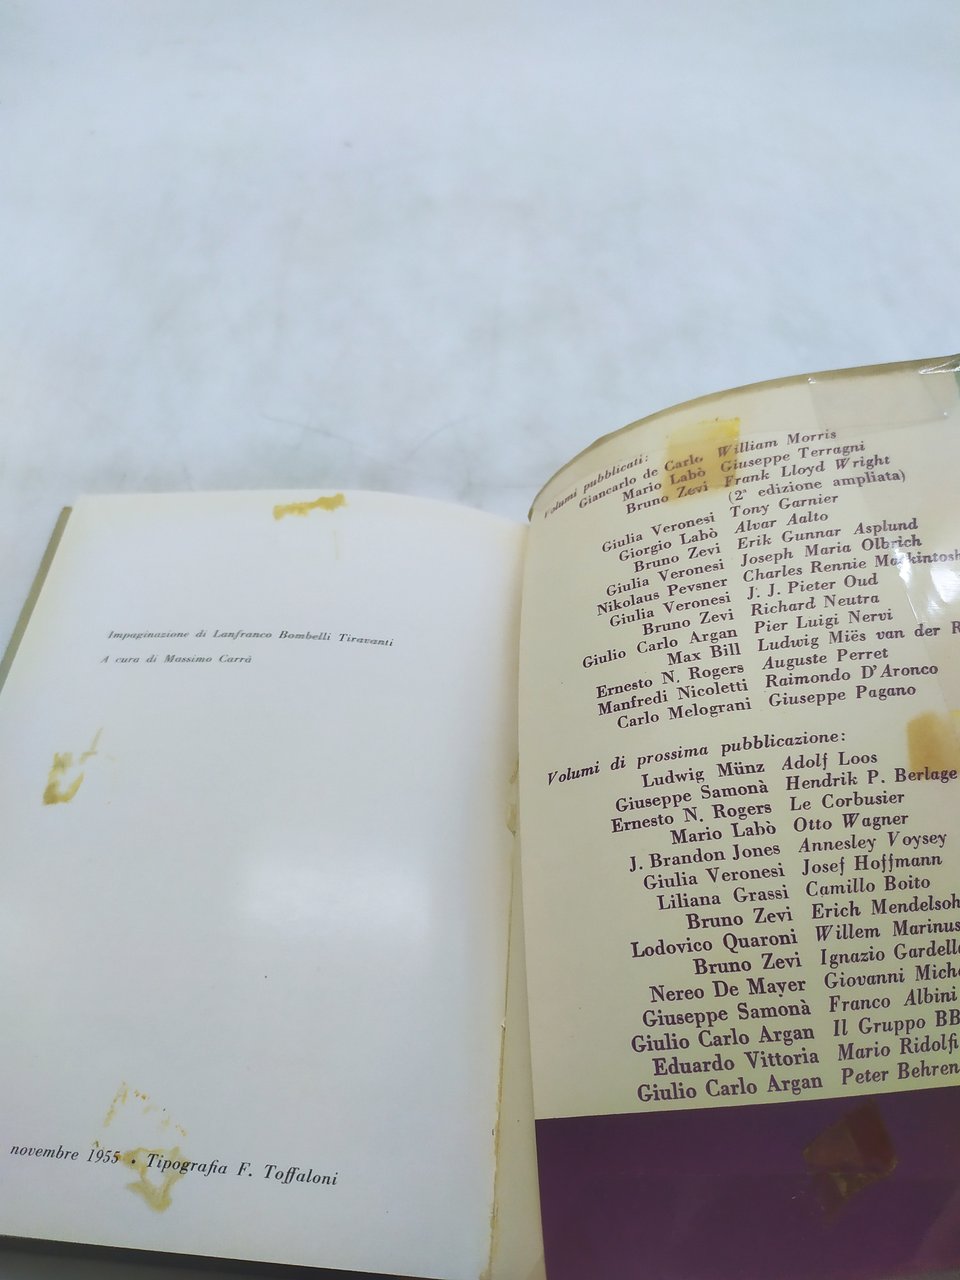 Impaginazione di Lanfranco Bombelli Tiravanti
A cura di Massimo Carrà
novembre 1955 • Tipografia F. Toffaloni
Volumi pubblicati:
Giancarlo de Carlo William Morris
Mario Labò Giuseppe Terragni
Bruno Zevi Frank Lloyd Wright
(2ª edizione ampliata)
Giulia Veronesi Tony Garnier
Giorgio Labò Alvar Aalto
Bruno Zevi Erik Gunnar Asplund
Giulia Veronesi Joseph Maria Olbrich
Nikolaus Pevsner Charles Rennie Mackintosh
Giulia Veronesi J. J. Pieter Oud
Bruno Zevi Richard Neutra
Giulio Carlo Argan Pier Luigi Nervi
Max Bill Ludwig Miës van der R
Ernesto N. Rogers Auguste Perret
Manfredi Nicoletti Raimondo D'Aronco
Carlo Melograni Giuseppe Pagano
Volumi di prossima pubblicazione:
Ludwig Münz Adolf Loos
Giuseppe Samonà Hendrik P. Berlage
Ernesto N. Rogers Le Corbusier
Mario Labò Otto Wagner
J. Brandon Jones Annesley Voysey
Giulia Veronesi Josef Hoffmann
Liliana Grassi Camillo Boito
Bruno Zevi Erich Mendelsoh
Lodovico Quaroni Willem Marinus
Bruno Zevi Ignazio Gardella
Nereo De Mayer Giovanni Miche
Giuseppe Samonà Franco Albini
Giulio Carlo Argan Il Gruppo BB
Eduardo Vittoria Mario Ridolfi
Giulio Carlo Argan Peter Behren